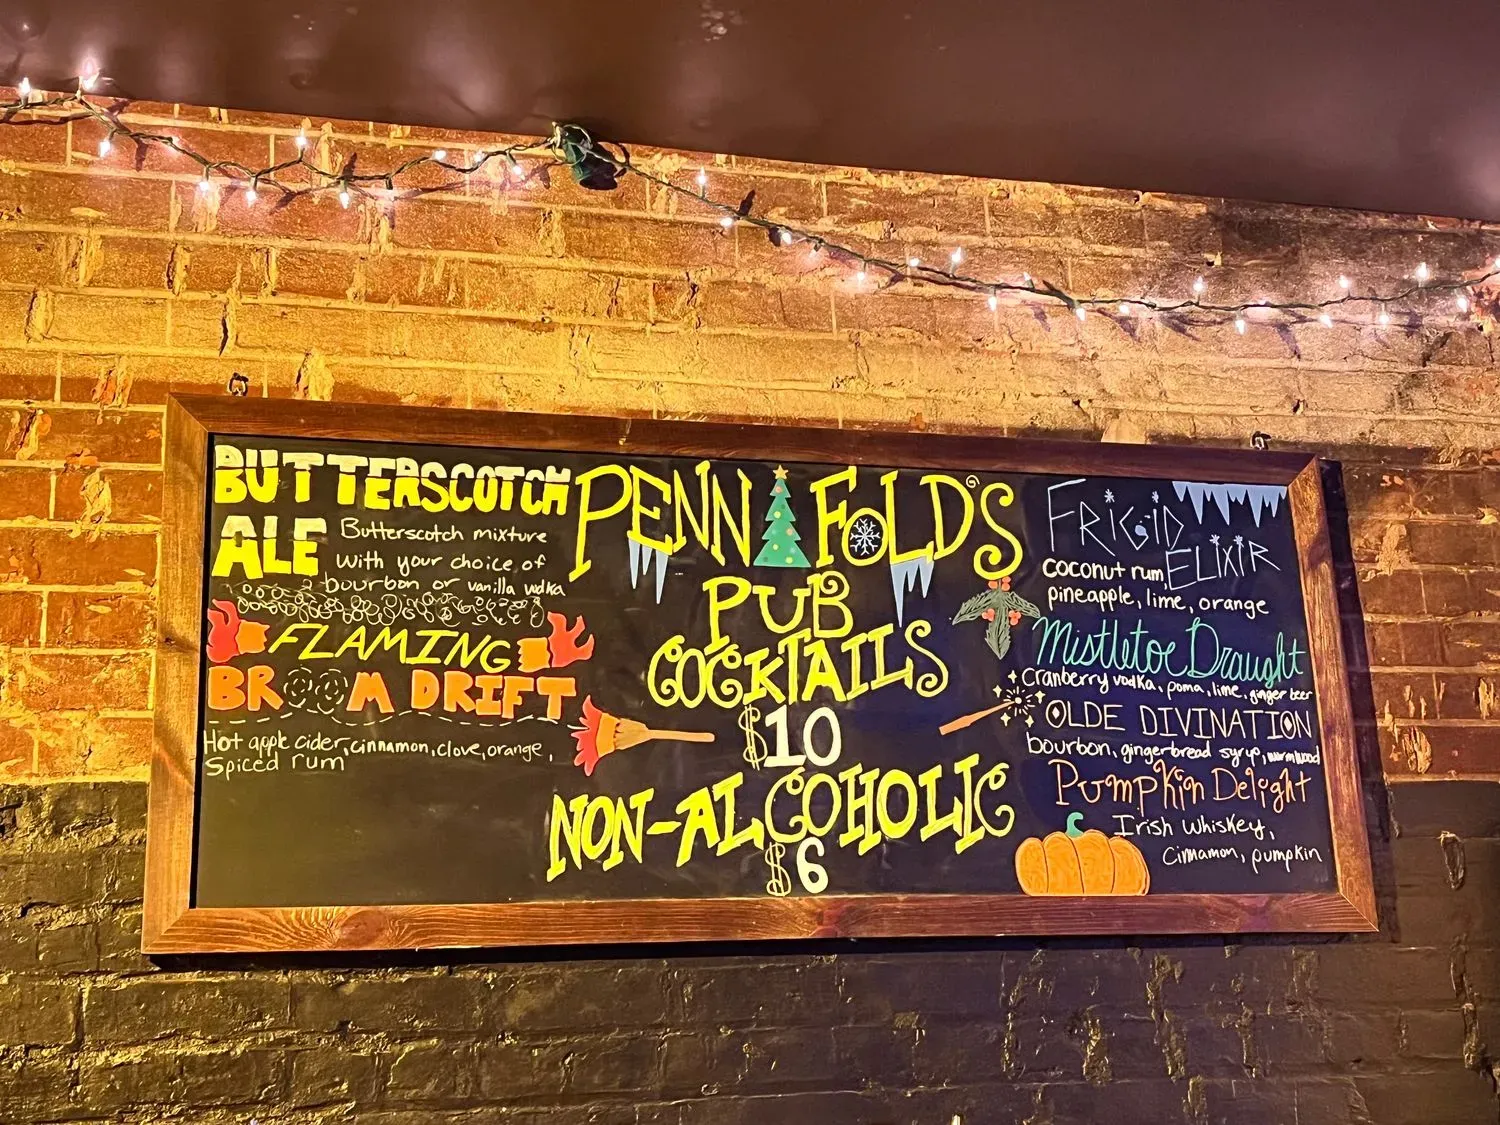 BUTTERSCOTCH
ALE
Butterscotch mixture
with your choice of
bourbon or vanilla vodka
FLAMING
BROOM DRIFT
Hot apple cider, cinnamon, clove, orange,
Spiced rum
PENN FOLD'S
PUB
COCKTAILS
$10
NON-ALCOHOLIC
$6
FRIGID
ELIXIR
coconut rum,
pineapple, lime, orange
Mistletoe Draught
Cranberry vodka, poma, lime, ginger beer
OLDE DIVINATION
bourbon, gingerbread syrup, wormwood
Pumpkin Delight
Irish whiskey,
cinnamon, pumpkin